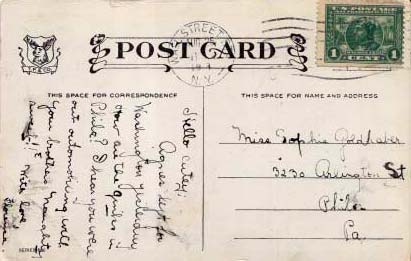 POST CARD
THIS SPACE FOR CORRESPONDENCE
THIS SPACE FOR NAME AND ADDRESS
U.S. POSTAGE
1 CENT 1
STREET
N.Y.
Hello cutey!
Agnes left for
Washington yesterday
How are the girls in
Phila? I hear you were
out automobiling with
your brothers. Naughty
Write love
Miss Sophie Goldhaber
3230 Arlington St
Phila
Pa.
SERIES